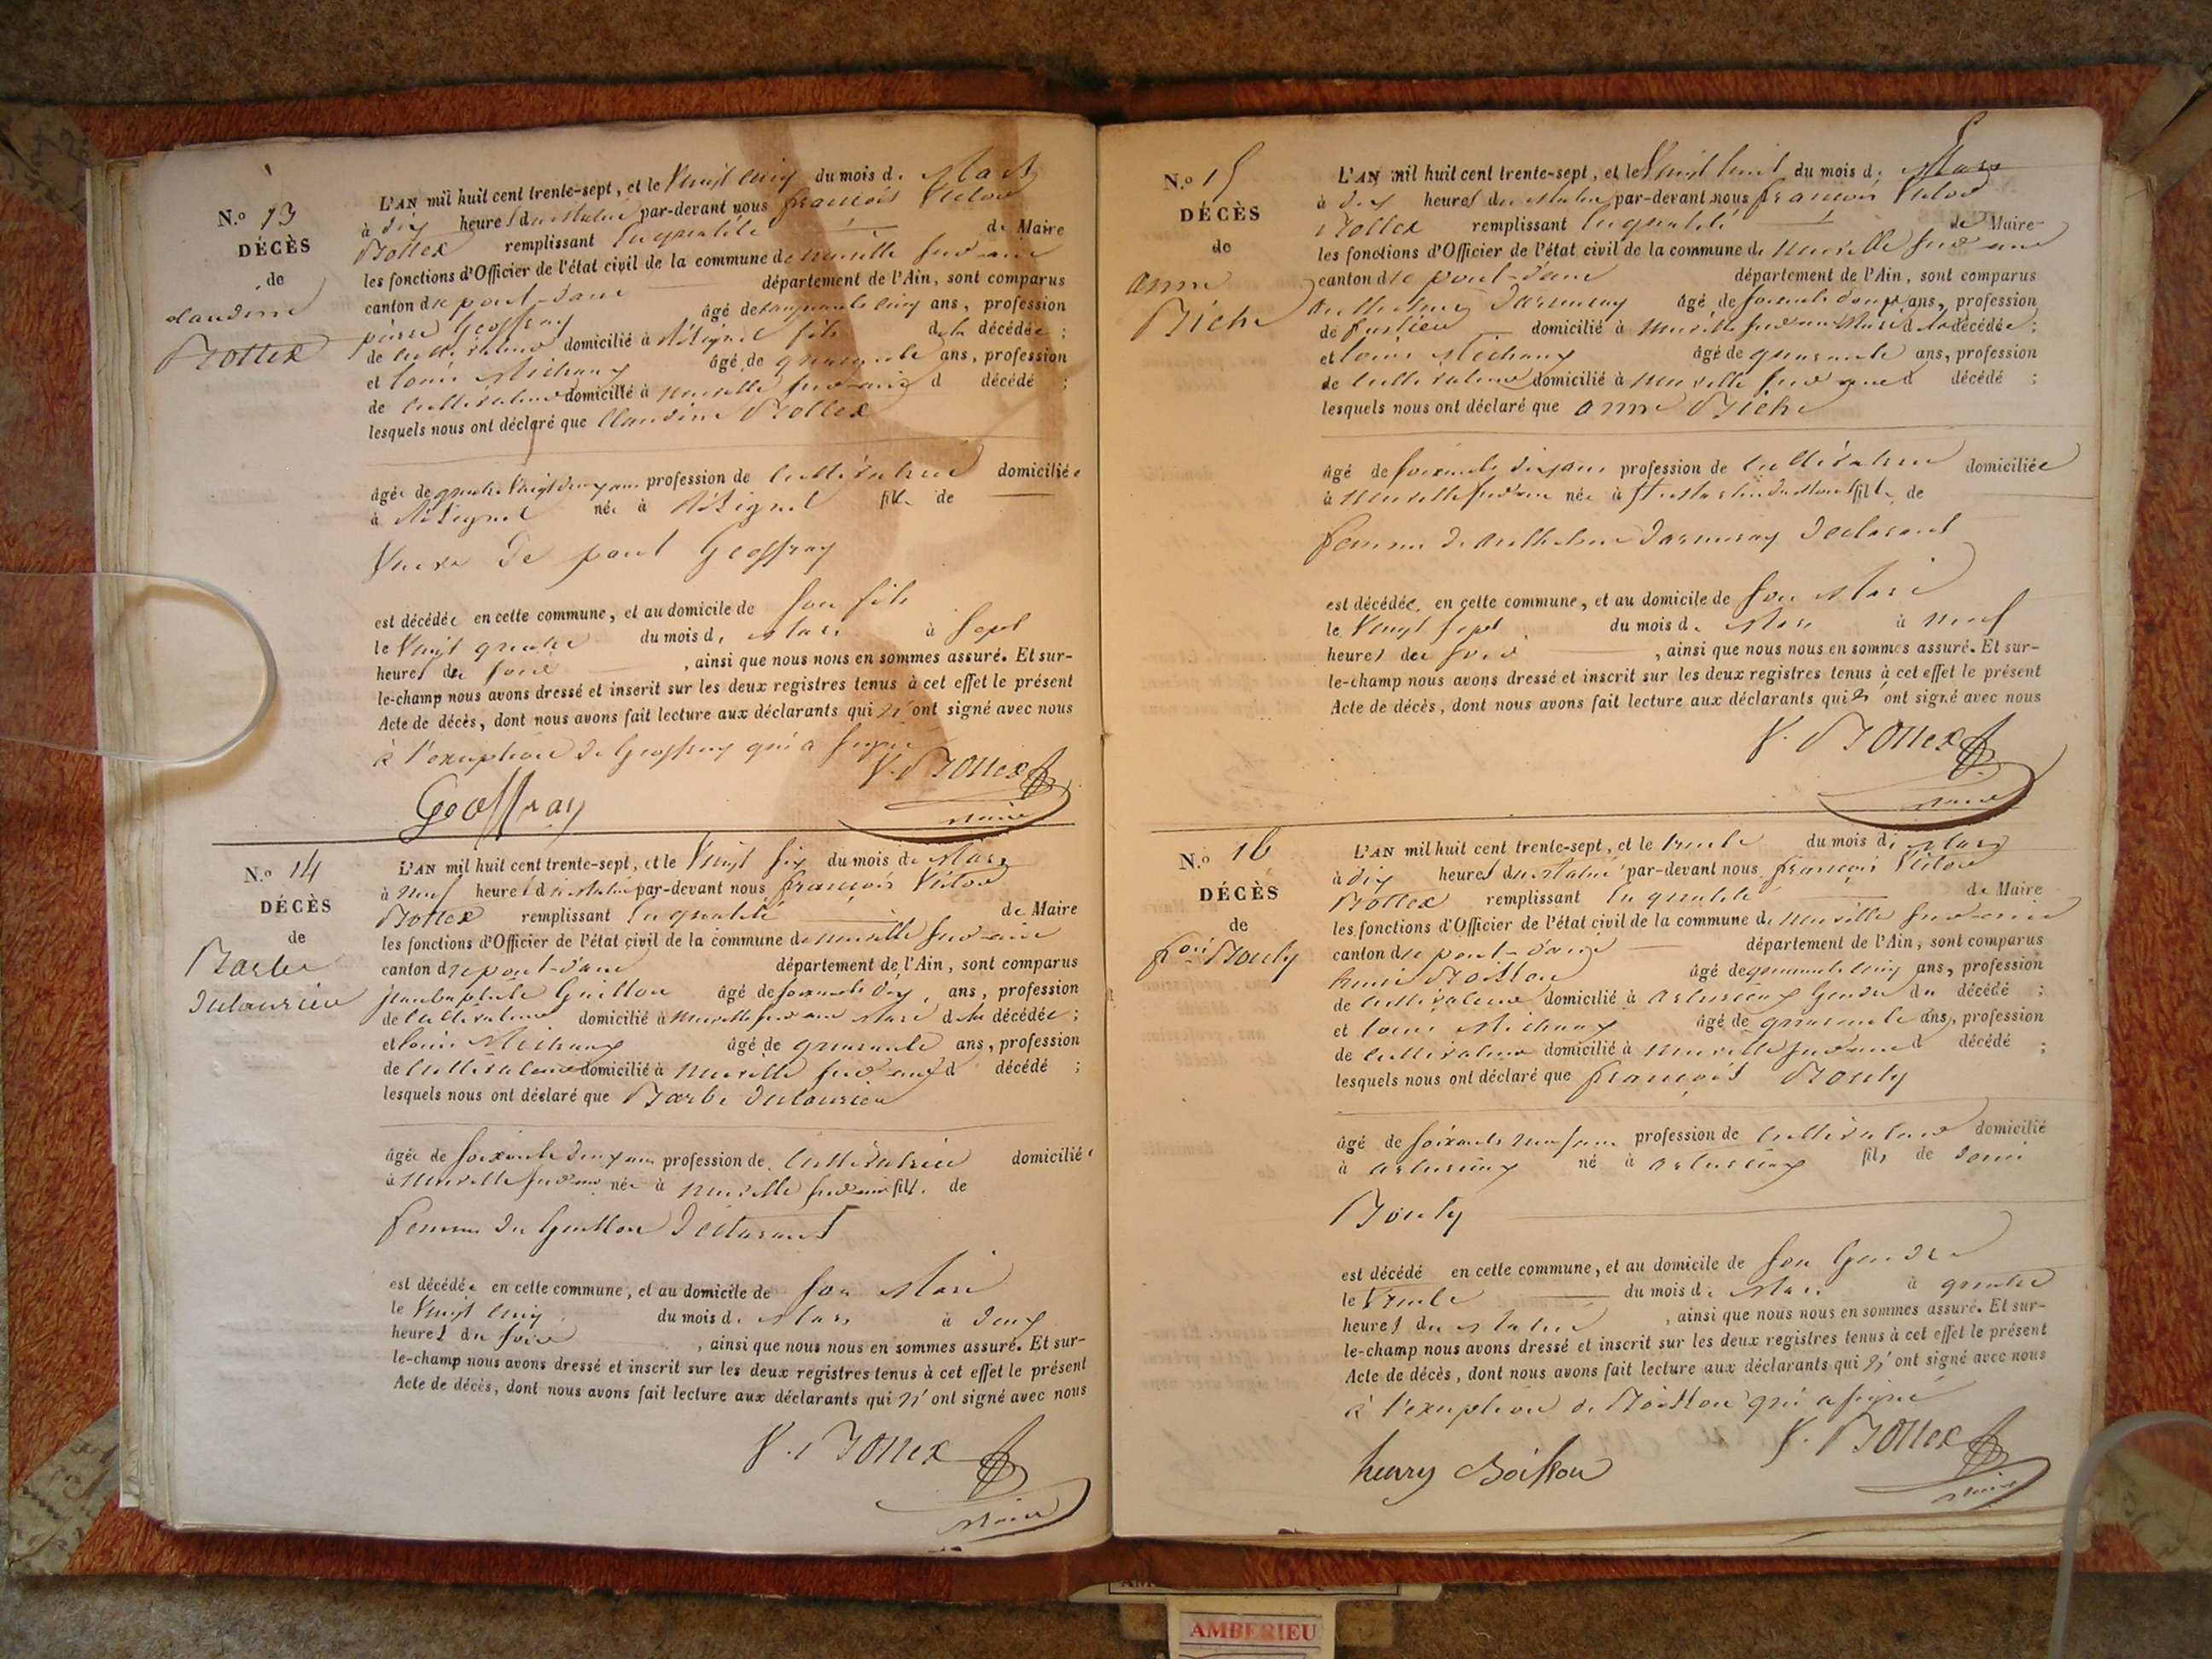 N.o 13
DÉCÈS
de
claudine
Bottex
L'AN mil huit cent trente-sept, et le Vingt cinq du mois de Mars
à dix heures du Matin par-devant nous françois Victor
Bottex remplissant En qualité de Maire
les fonctions d'Officier de l'état civil de la commune de neuville sur ain
canton de pont-d'ain département de l'Ain, sont comparus
pierre Geoffray âgé de cinquante cinq ans, profession
de cultivateur domicilié à fils de la décédée ;
et louis Michaux âgé de quarante ans, profession
de cultivateur domicilié à neuville sur ain d décédé ;
lesquels nous ont déclaré que Claudine Bottex
âgée de quatre Vingt deux ans profession de cultivatrice domiciliée
à née à fille de
Veuve de paul Geoffray
est décédée en cette commune, et au domicile de son fils
le Vingt quatre du mois de Mars à sept
heures du soir , ainsi que nous nous en sommes assuré. Et sur-
le-champ nous avons dressé et inscrit sur les deux registres tenus à cet effet le présent
Acte de décès, dont nous avons fait lecture aux déclarants qui n'ont signé avec nous
à l'exception de Geoffray qui a signé
V. Bottex
Geoffray
maire
N.o 14
DÉCÈS
de
Barbe
L'AN mil huit cent trente-sept, et le Vingt six du mois de Mars
à neuf heures du Matin par-devant nous françois Victor
Bottex remplissant En qualité de Maire
les fonctions d'Officier de l'état civil de la commune de neuville sur ain
canton de pont-d'ain département de l'Ain, sont comparus
jean baptiste Guillon âgé de soixante dix ans, profession
de cultivateur domicilié à neuville sur ain Mari de la décédée ;
et louis Michaux âgé de quarante ans, profession
de cultivateur domicilié à neuville sur ain d décédé ;
lesquels nous ont déclaré que Barbe
âgée de soixante deux ans profession de cultivatrice domiciliée
à neuville sur ain née à neuville sur ain fille de
femme du Guillon déclarant
est décédée en cette commune, et au domicile de son Mari
le Vingt cinq du mois de Mars à deux
heures du soir , ainsi que nous nous en sommes assuré. Et sur-
le-champ nous avons dressé et inscrit sur les deux registres tenus à cet effet le présent
Acte de décès, dont nous avons fait lecture aux déclarants qui n'ont signé avec nous
V. Bottex
maire
N.o 15
DÉCÈS
de
anne
Biche
L'AN mil huit cent trente-sept, et le Vingt huit du mois de Mars
à dix heures du matin par-devant nous françois Victor
Bottex remplissant En qualité de Maire
les fonctions d'Officier de l'état civil de la commune de neuville sur ain
canton de pont-d'ain département de l'Ain, sont comparus
anthelme Darmeray âgé de soixante douze ans, profession
de domicilié à neuville sur ain Mari de la décédée ;
et louis Michaux âgé de quarante ans, profession
de cultivateur domicilié à neuville sur ain d décédé ;
lesquels nous ont déclaré que anne Biche
âgé de soixante dix ans profession de cultivatrice domiciliée
à neuville sur ain née à St Martin du Mont fille de
femme de anthelme Darmeray déclarant
est décédée en cette commune, et au domicile de son Mari
le Vingt sept du mois de Mars à neuf
heures du soir , ainsi que nous nous en sommes assuré. Et sur-
le-champ nous avons dressé et inscrit sur les deux registres tenus à cet effet le présent
Acte de décès, dont nous avons fait lecture aux déclarants qui n'ont signé avec nous
V. Bottex
maire
N.o 16
DÉCÈS
de
fois Bouly
L'AN mil huit cent trente-sept, et le trente du mois de Mars
à dix heures du Matin par-devant nous françois Victor
Bottex remplissant En qualité de Maire
les fonctions d'Officier de l'état civil de la commune de neuville sur ain
canton de pont-d'ain département de l'Ain, sont comparus
henri Boisson âgé de quarante cinq ans, profession
de cultivateur domicilié à Gendre du décédé ;
et louis Michaux âgé de quarante ans, profession
de cultivateur domicilié à neuville sur ain d décédé ;
lesquels nous ont déclaré que françois Bouly
âgé de soixante neuf ans profession de cultivateur domicilié
à né à fils de
Bouly
est décédé en cette commune, et au domicile de son Gendre
le trente du mois de Mars à quatre
heures du matin , ainsi que nous nous en sommes assuré. Et sur-
le-champ nous avons dressé et inscrit sur les deux registres tenus à cet effet le présent
Acte de décès, dont nous avons fait lecture aux déclarants qui n'ont signé avec nous
à l'exception de Boisson qui a signé
V. Bottex
henry Boisson
maire
AMBERIEU